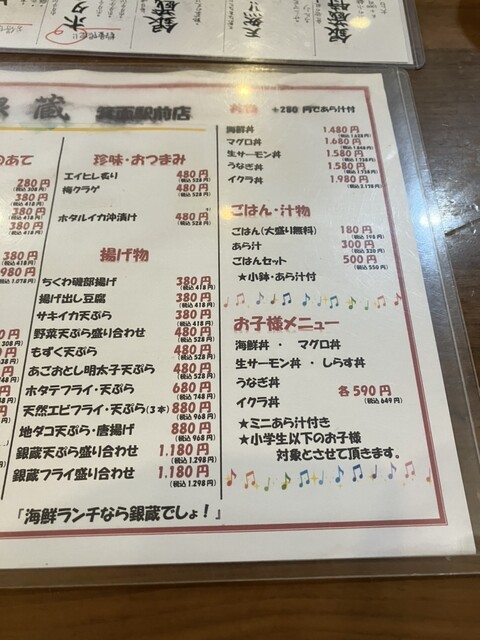 蔵 箕面駅前店
のあて
280円 (税込308円)
380円 (税込418円)
380円 (税込418円)
380円 (税込418円)
380円 (税込418円)
980円 (税込1.078円)
珍味・おつまみ
エイヒレ炙り 480円 (税込528円)
梅クラゲ 480円 (税込528円)
ホタルイカ沖漬け 480円 (税込528円)
揚げ物
ちくわ磯部揚げ 380円 (税込418円)
揚げ出し豆腐 380円 (税込418円)
サキイカ天ぷら 380円 (税込418円)
野菜天ぷら盛り合わせ 480円 (税込528円)
もずく天ぷら 480円 (税込528円)
あごおとし明太子天ぷら 480円 (税込528円)
ホタテフライ・天ぷら 680円 (税込748円)
天然エビフライ・天ぷら(3本) 880円 (税込968円)
地ダコ天ぷら・唐揚げ 880円 (税込968円)
銀蔵天ぷら盛り合わせ 1.180円 (税込1.298円)
銀蔵フライ盛り合わせ 1.180円 (税込1.298円)
+280円であら汁付
海鮮丼 1.480円 (税込1.628円)
マグロ丼 1.680円 (税込1.848円)
生サーモン丼 1.580円 (税込1.738円)
うなぎ丼 1.580円 (税込1.738円)
イクラ丼 1.980円 (税込2.178円)
ごはん・汁物
ごはん(大盛り無料) 180円 (税込198円)
あら汁 300円 (税込330円)
ごはんセット 500円 (税込550円)
★小鉢・あら汁付
お子様メニュー
海鮮丼 ・ マグロ丼
生サーモン丼 ・ しらす丼
うなぎ丼
イクラ丼 各590円 (税込649円)
★ミニあら汁付き
★小学生以下のお子様
対象とさせて頂きます。
「海鮮ランチなら銀蔵でしょ！」